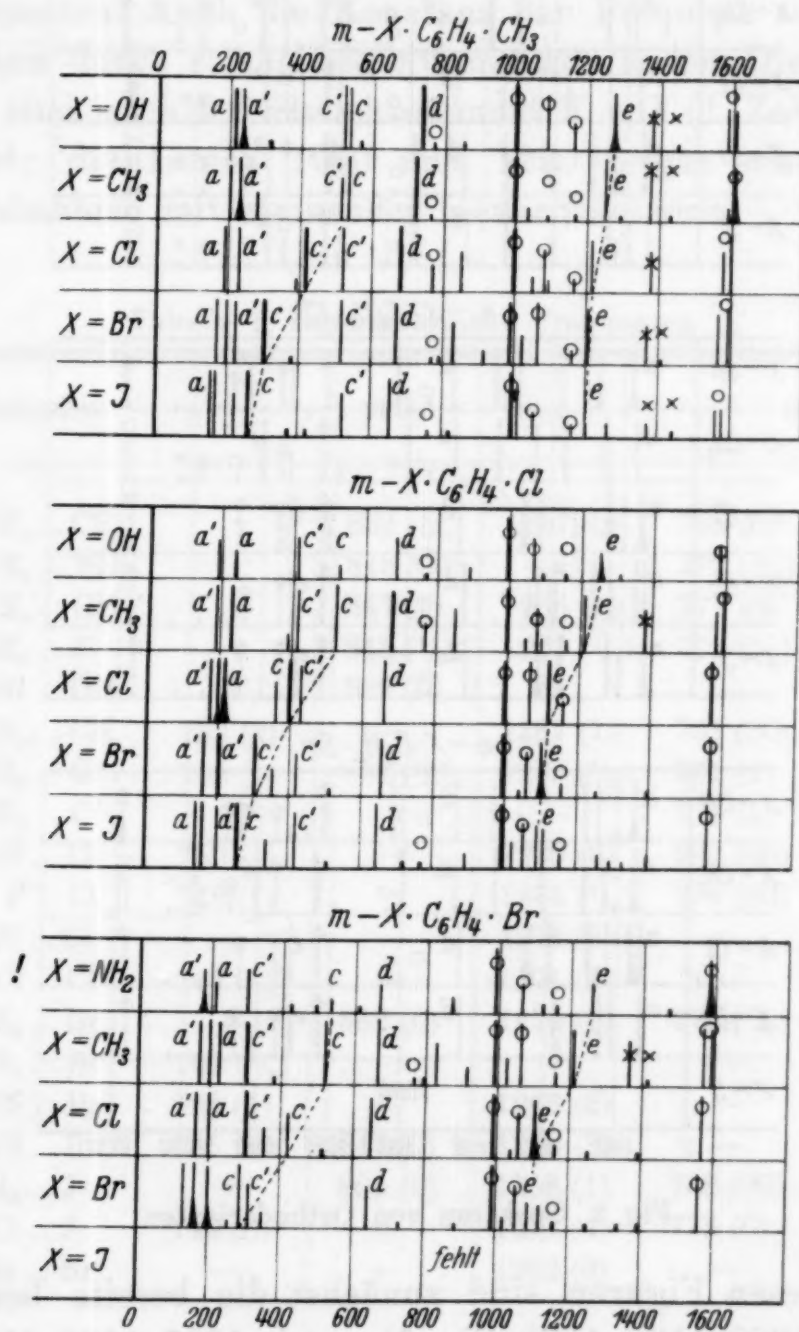 m-X·C₆H₄·CH₃
0 200 400 600 800 1000 1200 1400 1600
X=OH a a' c' c d e
X=CH₃ a a' c' c d e
X=Cl a a' c c' d e
X=Br a a' c c' d e
X=J a c c' d e
m-X·C₆H₄·Cl
X=OH a' a c' c d e
X=CH₃ a' a c' c d e
X=Cl a' a c c' d e
X=Br a' a' c c' d e
X=J a a' c c' d e
m-X·C₆H₄·Br
! X=NH₂ a' a c' c d e
X=CH₃ a' a c' c d e
X=Cl a' a c' c d e
X=Br c c' d e
X=J fehlt
0 200 400 600 800 1000 1200 1400 1600